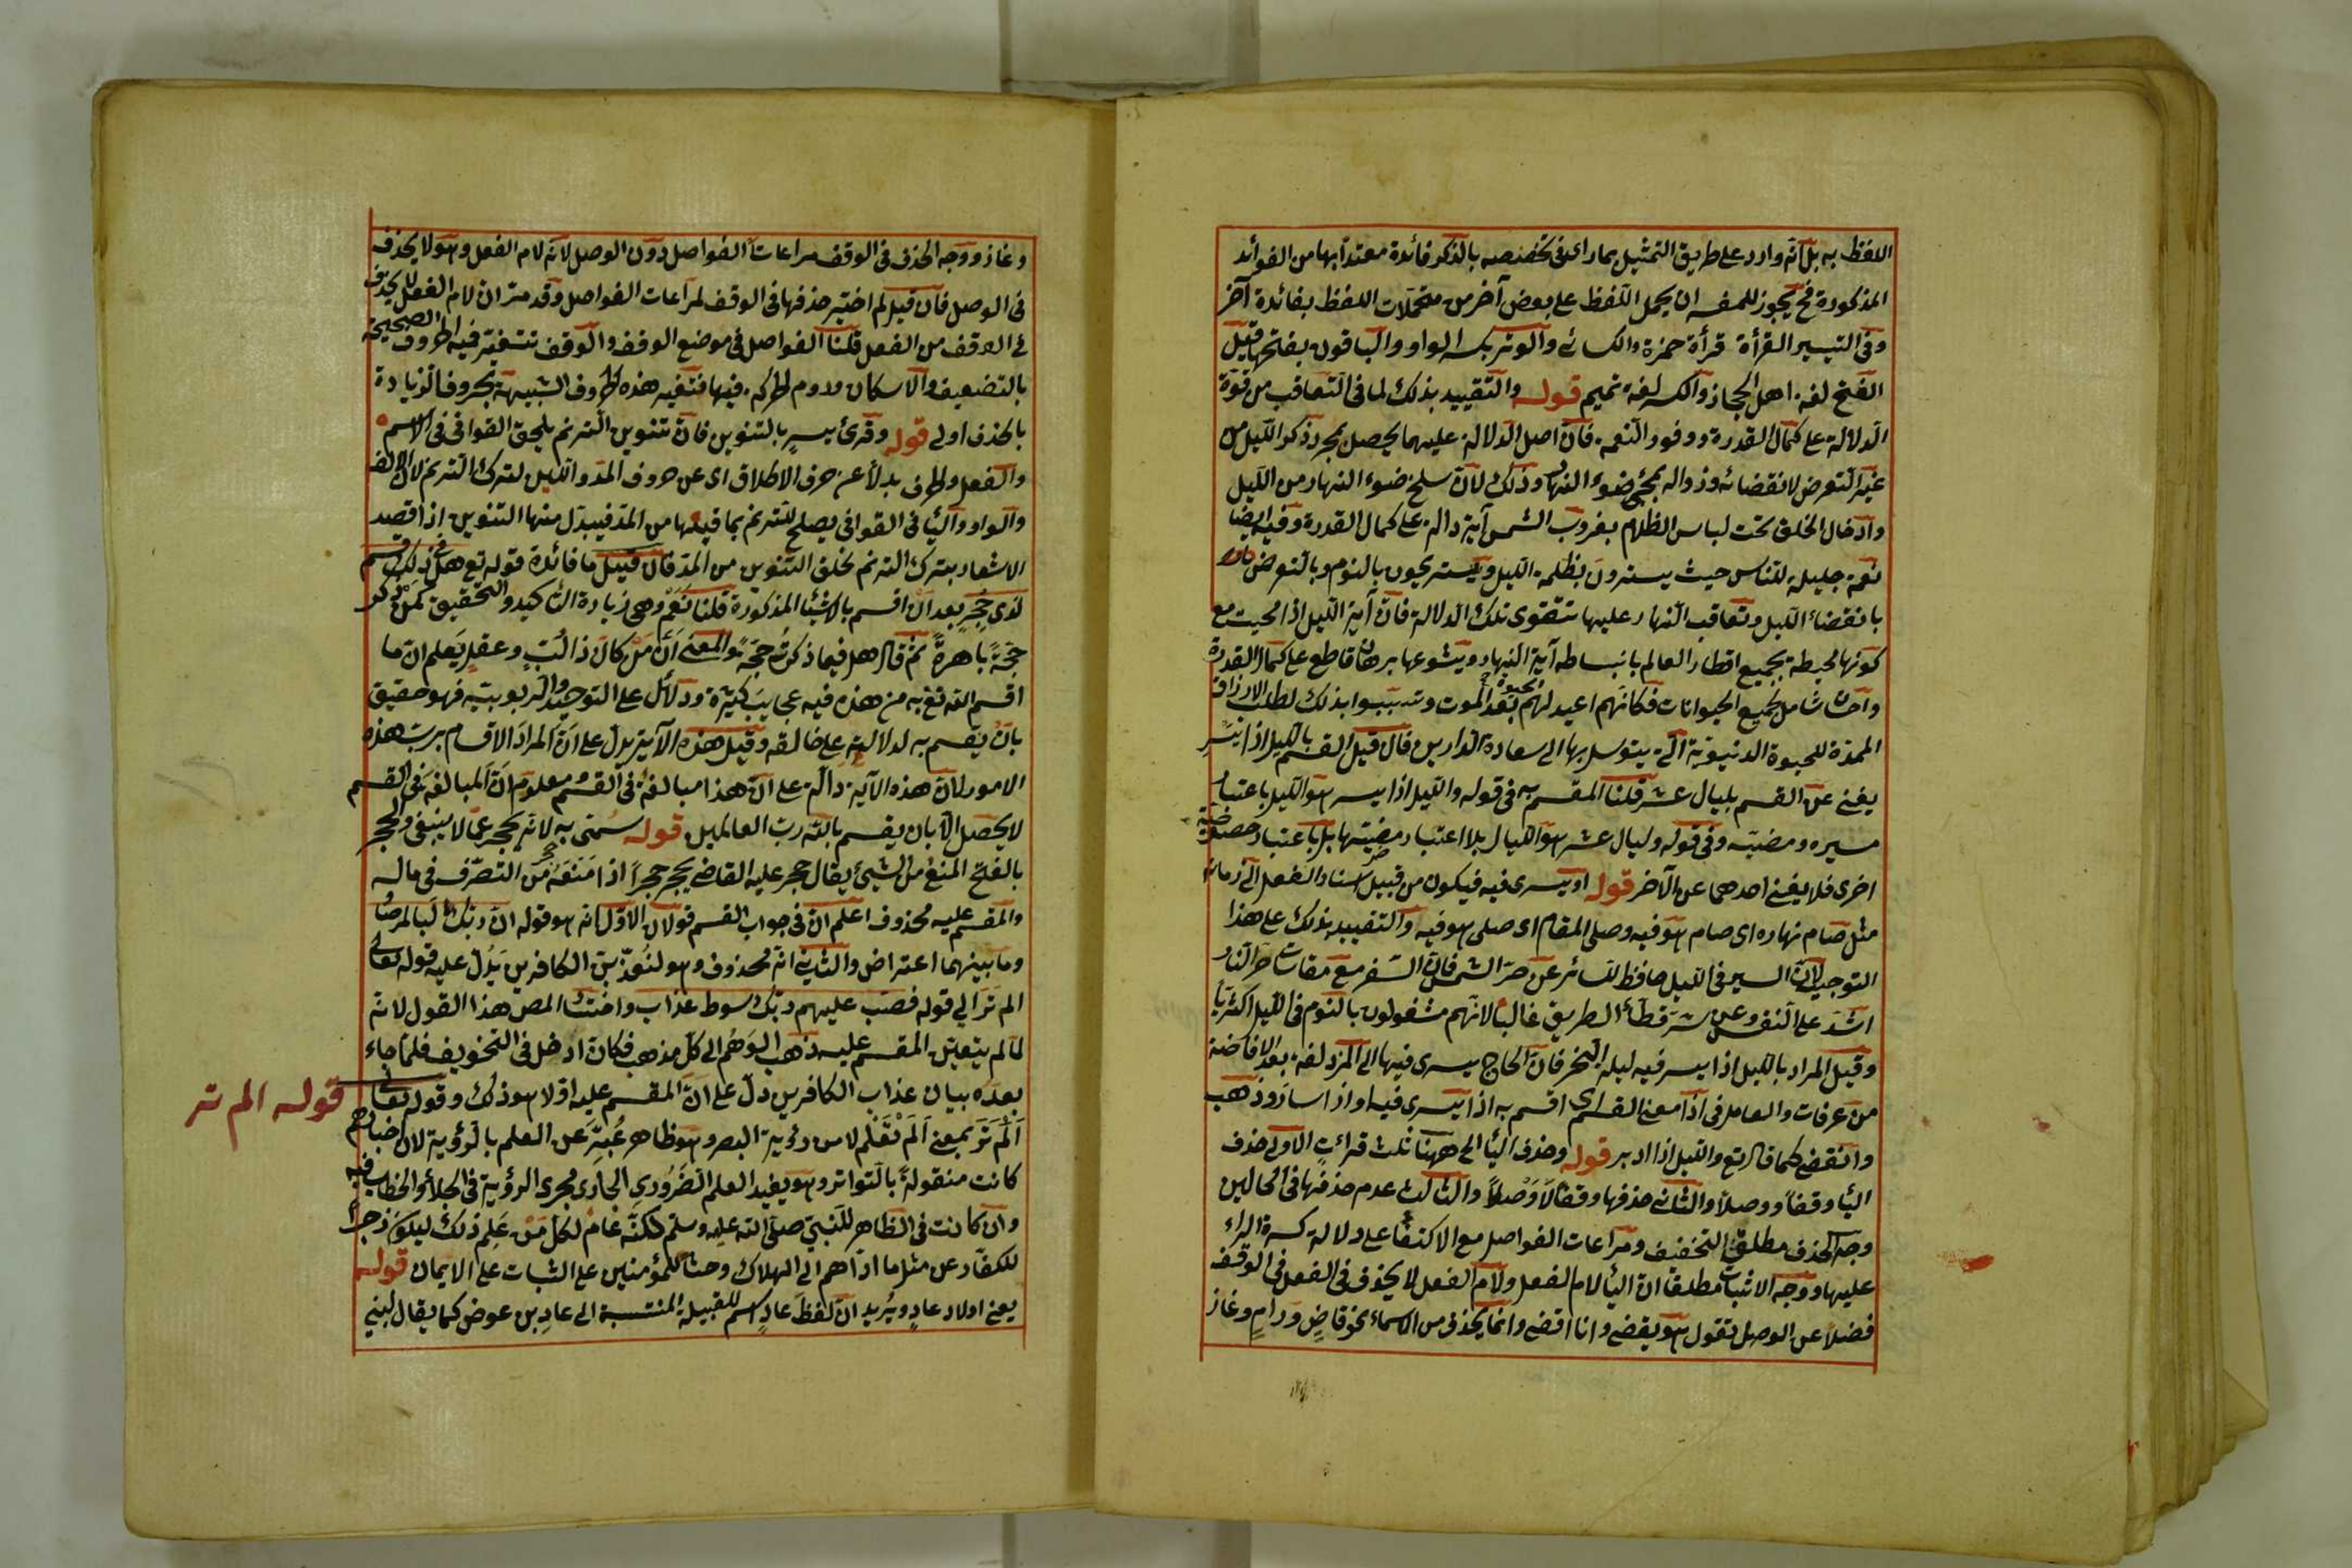 اللفظ به بل انه وارد على طريق التمثيل بما راى فى تخصيصه بالذكر فائدة معتدا بها من الفوائد
المذكورة فح يجوز للمفسر ان يحمل اللفظ على بعض آخر من محتملات اللفظ بفائدة آخر
وفى التيسير القرأة قرأة حمزة والكسائى والوتر بكسر الواو والباقون بفتحها قيل
الفتح لغة اهل الحجاز والكسر لغة تميم قوله والتقييد بذلك لما فى التعاقب من قوة
الدلالة على كمال القدرة ووفور النعمة فان اصل الدلالة عليهما يحصل بمجرد ذكر الليل من
غير التعرض لانقضائه وزواله بمجئ ضوء النهار وذلك لان سلخ ضوء النهار من الليل
وادخال الخلق تحت لباس الظلام بغروب الشمس آية دالة على كمال القدرة وفيه ايضا
نعمة جليلة للناس حيث يسترون بظلمة الليل ويستريحون بالنوم وبالتعرض
بانقضاء الليل وتعاقب النهار عليها تتقوى تلك الدلالة فان آية الليل اذا محيت مع
كونها محيطة بجميع اقطار العالم بانبساط آية النهار وشيوعها برهان قاطع على كمال القدرة
واحسان شامل لجميع الحيوانات فكانهم اعيد لهم الحيوة بعد الموت وتسببوا بذلك لطلب الارزاق
الممدة للحيوة الدنيوية التى يتوسل بها الى سعادة الدارين فان قيل القسم بالليل اذا يسر
يغنى عن القسم بليال عشر قلنا المقسم به فى قوله والليل اذا يسر هو الليل باعتبار
مسيره ومضيه وفى قوله وليال عشر هو الليال بلا اعتبار مضيتها بل باعتبار خصوصية
اخرى فلا يغنى احدهما عن الآخر قوله او يسرى فيه فيكون من قبيل اسناد الفعل الى زمانه
مثل صام نهاره اى صام هو فيه وصلى المقام اى صلى هو فيه والتقييد بذلك على هذا
التوجيه لان السير فى الليل حافظ للسائر عن حر الشمس فان السفر مع مقاسات حر النار
اشد على النفس وعن شر قطاع الطريق غالبا لانهم مشغولون بالنوم فى الليل اكثريا
وقيل المراد بالليل اذا يسر فيه ليلة النحر فان الحاج يسرى فيها الى المزدلفة بعد الافاضة
من عرفات والعامل فى اذا معنى القسم اى اقسم به اذا يسرى فيه او اذا سار وذهب
وانقضى كما قال تع والليل اذا ادبر قوله وحذف اليأ الخ ههنا ثلث قراءات الاولى حذف
اليأ وقفا ووصلا والثانى حذفها وقفا لا وصلا والثالث عدم حذفها فى الحالين
وجه الحذف مطلقا التخفيف ومراعات الفواصل مع الاكتفاء على دلالة كسرة الراء
عليها ووجه الاثبات مطلقا ان اليأ لام الفعل ولام الفعل لا يحذف فى الفعل فى الوقف
فضلا عن الوصل تقول هو يقضى وانا اقضى وانما يحذف من الاسماء نحو قاض ورام وغاز
وغاز ووجه الحذف فى الوقف مراعات الفواصل دون الوصل لانه لام الفعل وهو لا يحذف
فى الوصل فان قيل لم اختير حذفها فى الوقف لمراعات الفواصل وقد مر ان لام الفعل لا يحذف
فى الوقف من الفعل قلنا الفواصل فى موضع الوقف والوقف تتغير فيه الحروف الصحيحة
بالتضعيف والاسكان وروم الحركة فيها فتغير هذه الحروف الشبيهة بحروف الزيادة
بالحذف اولى قوله وقرئ يسر بالتنوين فان تنوين الترنم يلحق القوافى فى الاسم
والفعل والحرف بدلا عن حرف الاطلاق اى عن حروف المد واللين لترك الترنم لان الالف
والواو واليأ فى القوافى يصلح للترنم بما فيها من المد فيبدل منها التنوين اذا قصد
الاشعار بترك الترنم لخلو التنوين من المد فان قيل ما فائدة قوله تع هل فى ذلك قسم
لذى حجر بعد ان اقسم بالاشيأ المذكورة قلنا نعم وهى زيادة التأكيد والتحقيق كمن ذكر
حجة باهرة ثم قال هل فيما ذكرت حجة والمعنى ان من كان ذا لب وعقل يعلم ان ما
اقسم الله تع به من هذه فيه عجايب كثيرة ودلائل على التوحيد والربوبية فهو حقيق
بان يقسم به لدلالته على خالقه وقيل هذه الآية يدل على ان المراد الاقسام برب هذه
الامور لان هذه الآية دالة على ان هذا مبالغة فى القسم ومعلوم ان المبالغة فى القسم
لا يحصل الا بان يقسم بالله رب العالمين قوله سمى به لانه يحجر عما لا ينبغى والحجر
بالفتح المنع من الشئ يقال حجر عليه القاضى يحجر حجرا اذا منعه من التصرف فى ماله
والمقسم عليه محذوف اعلم ان فى جواب القسم قولان الاول انه هو قوله ان ربك لبالمرصاد
وما بينهما اعتراض والثانى انه محذوف وهو لنعذبن الكافرين يدل عليه قوله تعالى
الم تر الى قوله فصب عليهم ربك سوط عذاب واختار المص هذا القول لانه
لما لم يتعين المقسم عليه ذهب الوهم الى كل مذهب فكان ادخل فى التخويف فلما جاء
بعده بيان عذاب الكافرين دل على ان المقسم عليه اولا هو ذلك وقوله تعالى
قوله الم تر
الم تر بمعنى الم تعلم لا من رؤية البصر وهو ظاهر عبر عن العلم بالرؤية لان اخبارهم
كانت منقولة بالتواتر وهو يفيد العلم الضرورى الجارى مجرى الرؤية فى الجلاء والخطاب فيه
وان كانت فى الظاهر للنبى صلى الله عليه وسلم لكنه عام لكل من علم ذلك ليكون زجرا
للكفار عن مثل ما اداهم الى الهلاك وحثا للمؤمنين على الثبات على الايمان قوله
يعنى اولاد عاد ويريد ان لفظ عاد اسم للقبيلة المنتسبة الى عاد بن عوض كما يقال لبنى